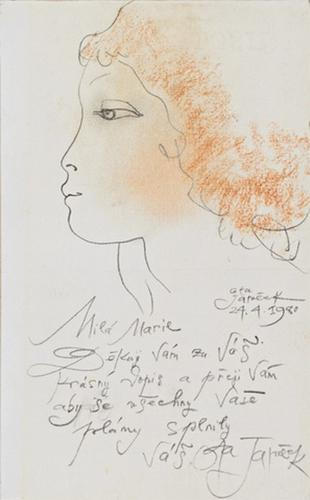 Ota
Janeček
24.4.1980
Milá Marie
Děkuji Vám za Váš
krásný dopis a přeji Vám
aby se všechny Vaše
plány splnily
Váš Ota Janeček